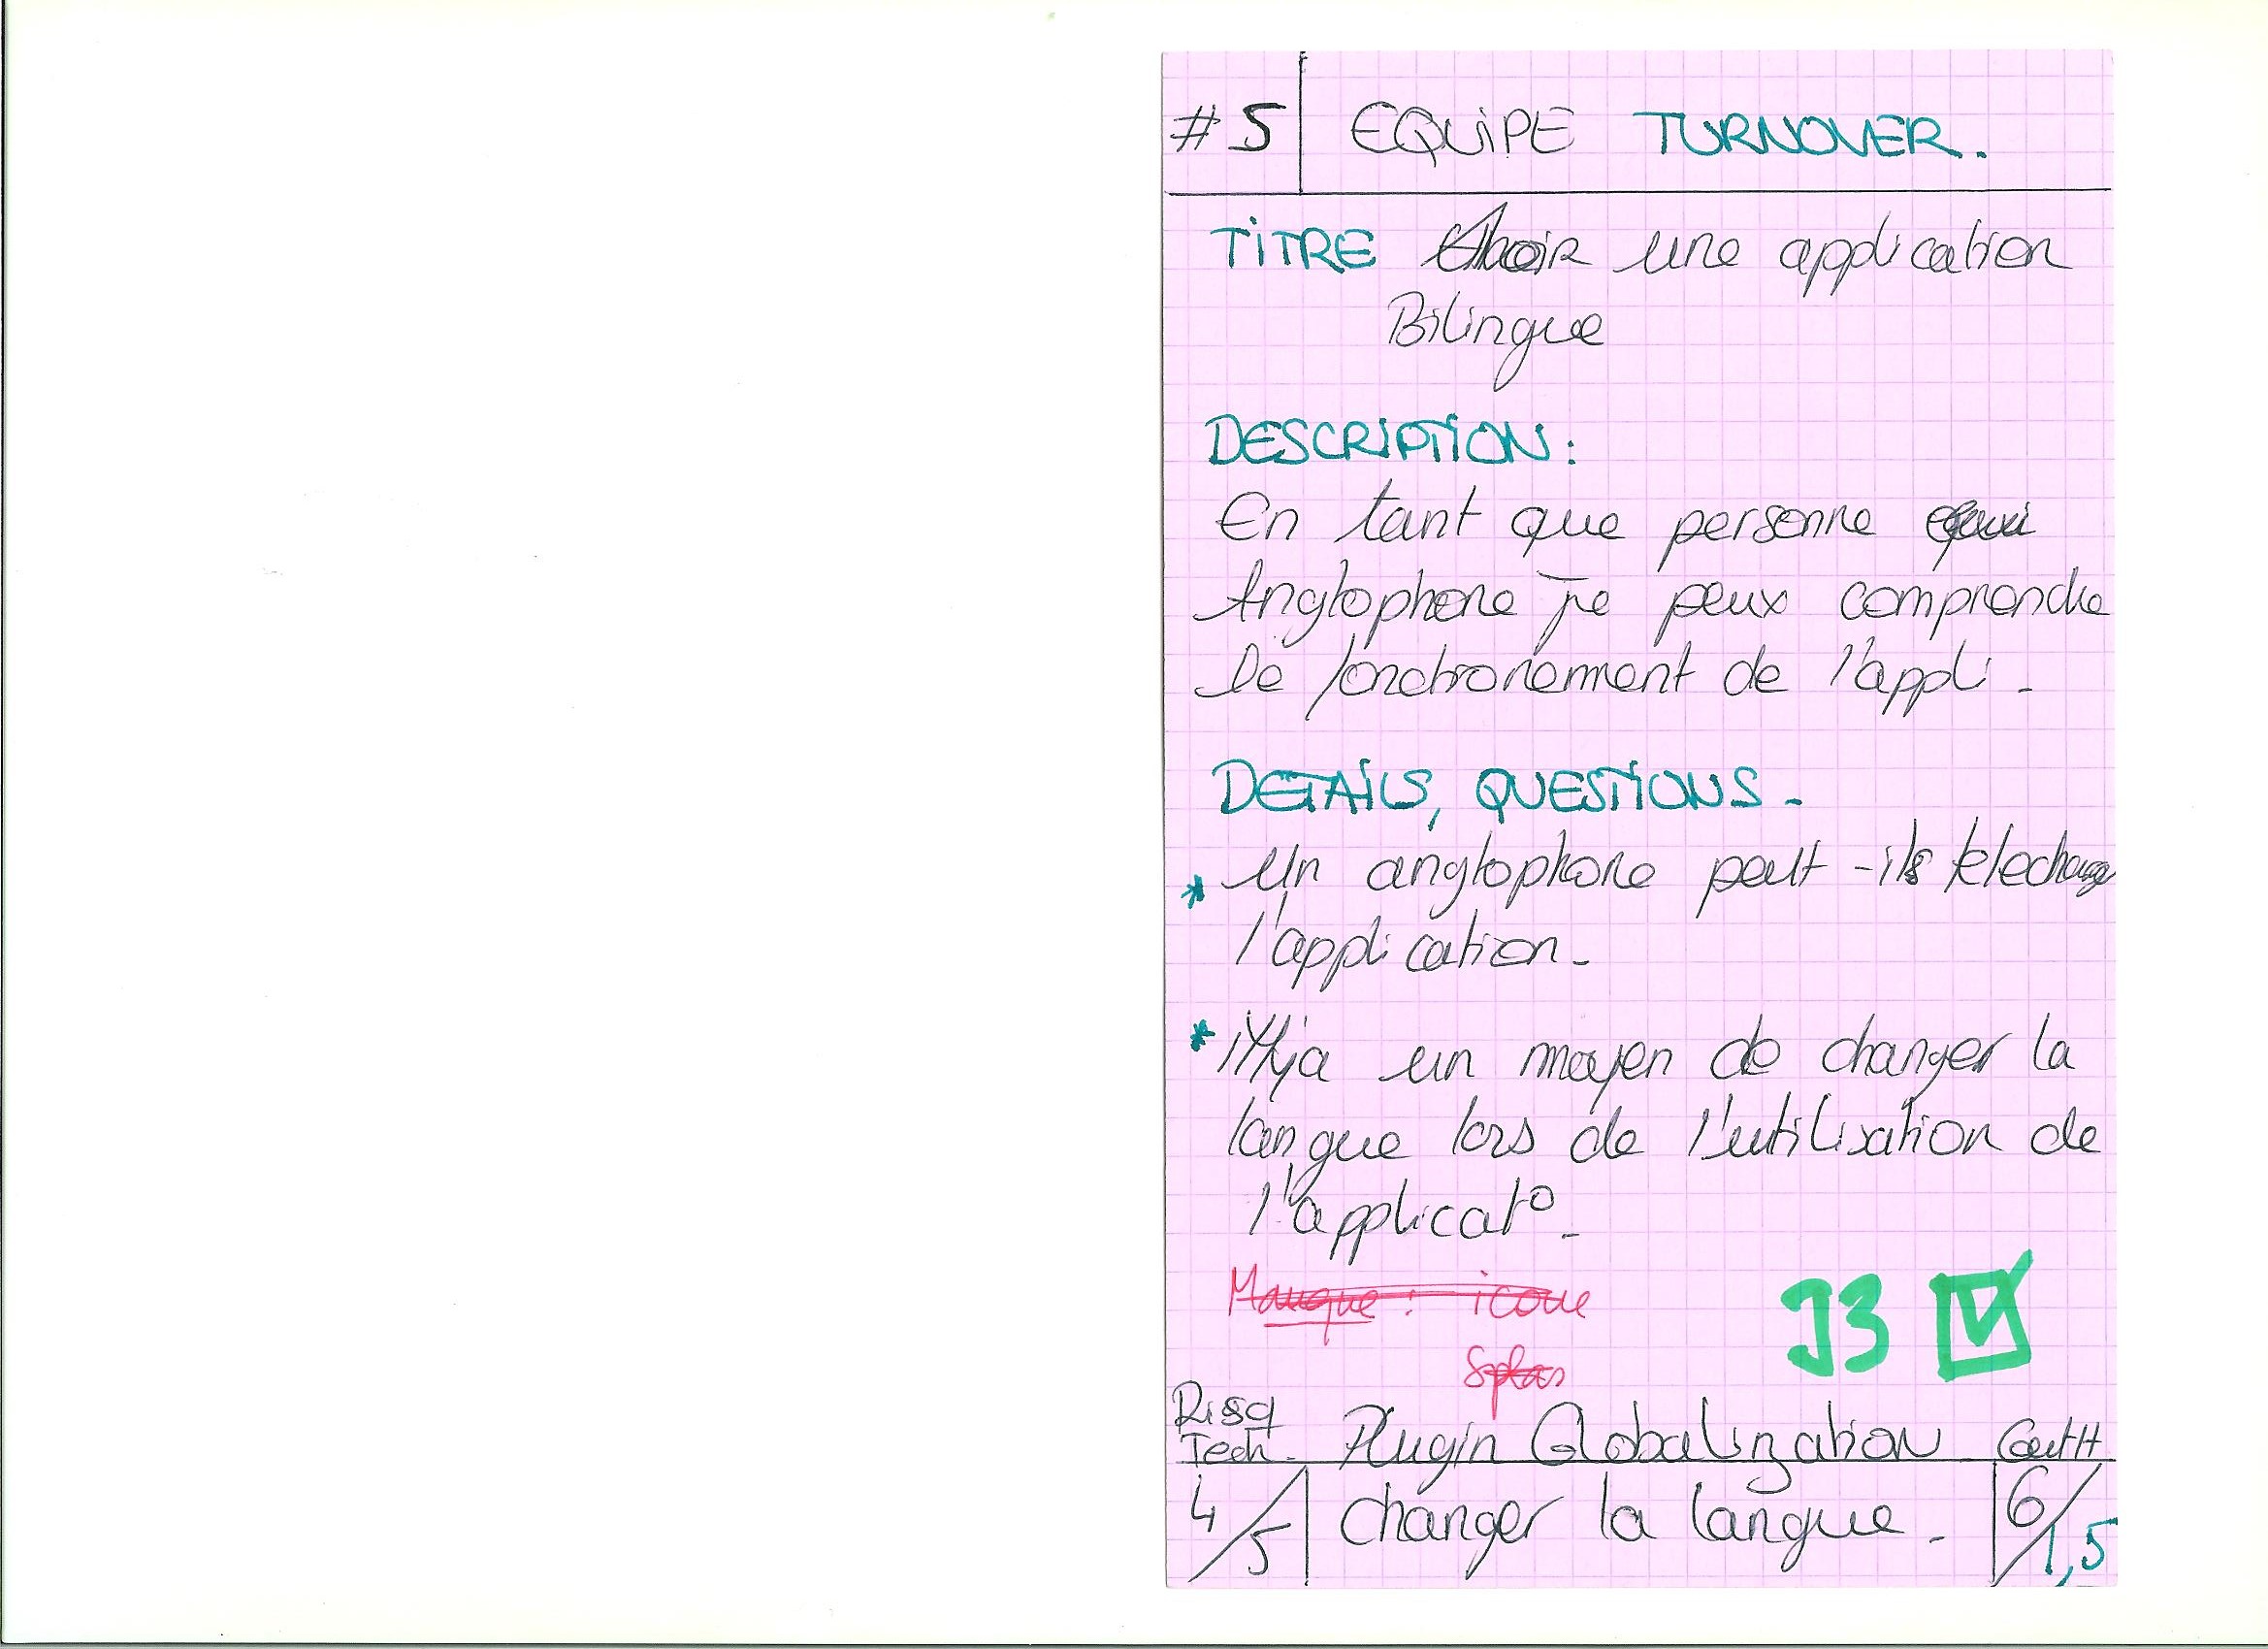 #5 EQUIPE TURNOVER.
TITRE Avoir une application
Bilingue
DESCRIPTION:
En tant que personne
Anglophone je peux comprendre
le fonctionement de l'appli.
DETAILS, QUESTIONS -
* Un anglophone peut-il telecharger
l'application.
* il y'a un moyen de changer la
langue lors de l'utilisation de
l'applicat°.
Manque : icone
Splas
J3
Risq
Tech. Plugin Globalization Cout H
4/5 changer la langue. 6/1,5